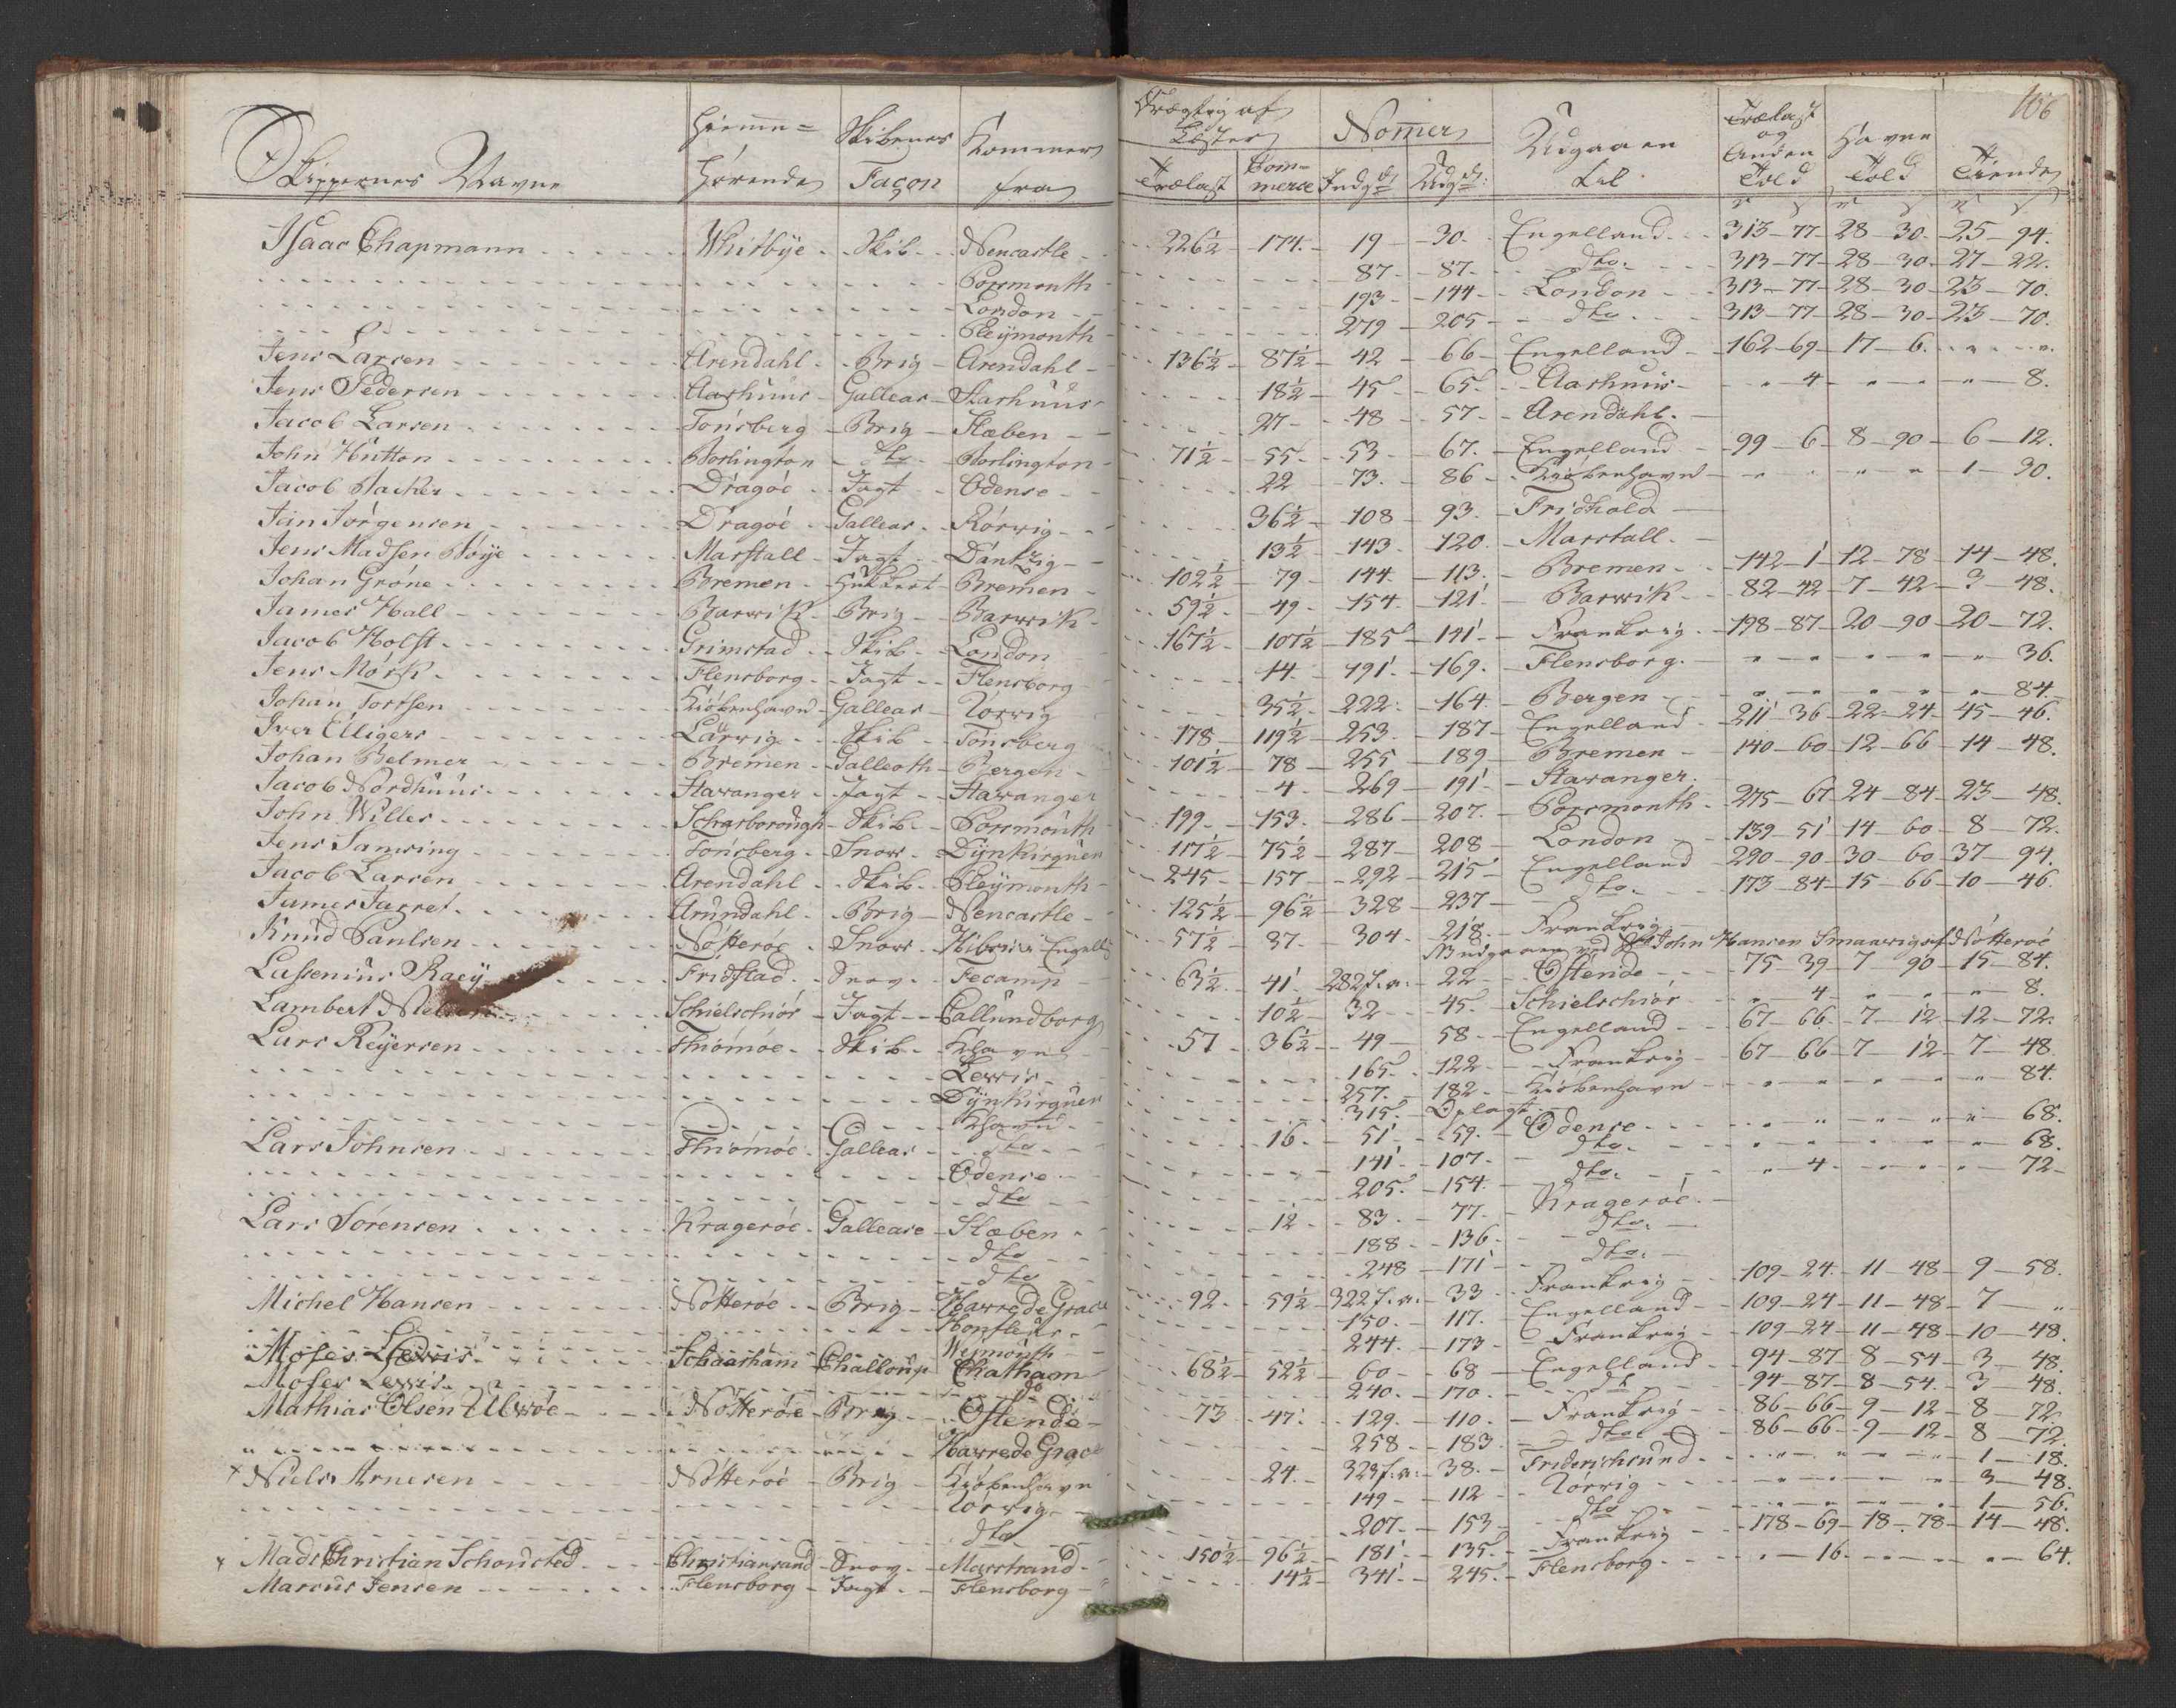 106
Skippernes Navne | Hiemme=hørende | Skibenes Façon | Kommer fra | Drægtig af Læster Trælast | Com=merce | Nomer Indg: | Udg: | Udgaaen til | Trælast og Anden Told | Havne Told | Tiende
Isaac Chapmann | Whitbÿe | Skib | Newcastle | 226½ | 174 | 19 | 30 | Engelland | 313-77 | 28-30 | 25-94
Porsmouth | 87 | 87 | dto | 313-77 | 28-30 | 27-22
London | 193 | 144 | London | 313-77 | 28-30 | 23-70
Pleÿmouth | 279 | 205 | dto | 313-77 | 28-30 | 23-70
Jens Larsen | Arendahl | Brig | Arendahl | 136½ | 87½ | 42 | 66 | Engelland | 162-69 | 17-6 | "-"
Jens Pedersen | Aarhuus | Galleas | Aarhuus | 18½ | 45 | 65 | Aarhuus | "-4 | "-" | "-8
Jacob Larsen | Tönsberg | Brig | Staeben | 27 | 48 | 57 | Arendahl
John Hutton | Borlington | dto | Borlington | 71½ | 55 | 53 | 67 | Engelland | 99-6 | 8-90 | 6-12
Jacob Backer | Dragöe | Jagt | Odense | 22 | 73 | 86 | Kiöbenhavn | "-" | "-" | 1-90
Jan Jörgensen | Dragöe | Galleas | Rörvig | 36½ | 108 | 93 | Fridhald
Jens Madsen Böÿe | Marstall | Jagt | Dantzig | 13½ | 143 | 120 | Marstall
Johan Gröne | Bremen | Hukkert | Bremen | 102½ | 79 | 144 | 113 | Bremen | 142-1 | 12-78 | 14-48
James Hall | Barwik | Brig | Barwik | 59½ | 49 | 154 | 121 | Barwik | 82-42 | 7-42 | 3-48
Jacob Holst | Grimstad | Skib | London | 167½ | 107½ | 185 | 141 | Frankrig | 198-87 | 20-90 | 20-72
Jens Mörk | Flensborg | Jagt | Flensborg | 14 | 191 | 169 | Flensborg | "-" | "-" | "-36
Johan Tortsen | Kiöbenhavn | Galleas | Rörvig | 35½ | 222 | 164 | Bergen | "-" | "-" | "-84
Iver Elligers | Larvig | Skib | Tönsberg | 178 | 119½ | 253 | 187 | Engelland | 211-36 | 22-24 | 45-46
Johan Belmer | Bremen | Galleoth | Bergen | 101½ | 78 | 255 | 189 | Bremen | 140-60 | 12-66 | 14-48
Jacob Nordhuus | Stavanger | Jagt | Stavanger | 4 | 269 | 191 | Stavanger
John Willes | Scharborough | Skib | Porsmouth | 199 | 153 | 286 | 207 | Porsmouth | 275-67 | 24-84 | 23-48
Jens Samsing | Tönsberg | Snow | Dÿnkirquen | 117½ | 75½ | 287 | 208 | London | 139-51 | 14-60 | 8-72
Jacob Larsen | Arendahl | Skib | Pleÿmouth | 245 | 157 | 292 | 215 | Engelland | 290-90 | 30-60 | 37-94
James Jarret | Arundahl | Brig | Newcastle | 125½ | 96½ | 328 | 237 | dto | 173-84 | 15-66 | 10-46
Knud Paulsen | Nötteröe | Snow | Engell: | 57½ | 37 | 304 | 218 | Frankrig
John Hansen Smaavig af Nötteröe
Lassenius Racÿ | Fridstad | Snow | Fecamp | 63½ | 41 | 282 f:a: | 22 | Ostende | 75-39 | 7-90 | 15-84
Lambert | Schielschiör | Jagt | Callundborg | 10½ | 32 | 45 | Schielschiör | "-4 | "-" | "-8
Lars Reÿersen | Thiömöe | Skib | Khavn | 57 | 36½ | 49 | 58 | Engelland | 67-66 | 7-12 | 12-72
Lewis | 165 | 122 | Frankrig | 67-66 | 7-12 | 7-48
Dÿnkirquen | 257 | 182 | Kiöbenhavn | "-" | "-" | "-84
Khavn | 315 | Oplagt
Lars Johnsen | Thiömöe | Galleas | dto | 16 | 51 | 59 | Odense | "-" | "-" | "-68
Odense | 141 | 107 | dto | "-" | "-" | "-68
dto | 205 | 154 | dto | "-4 | "-" | "-72
Lars Sörensen | Krageröe | Gallease | Staeben | 12 | 83 | 77 | Krageröe
dto | 188 | 136 | dto
dto | 248 | 171 | dto
Michel Hansen | Nötteröe | Brig | Havre de Grace | 92 | 59½ | 322 f:a: | 33 | Frankrig | 109-24 | 11-48 | 9-58
Honfleur | 150 | 117 | Engelland | 109-24 | 11-48 | 7-"
Weÿmouth | 244 | 173 | Frankrig | 109-24 | 11-48 | 10-48
Moses Lewis | Schaarham | Challoup | Chatham | 68½ | 52½ | 60 | 68 | Engelland | 94-87 | 8-54 | 3-48
Moses Lewis | do | 240 | 170 | dt | 94-87 | 8-54 | 3-48
Mathias Olsen Ulvöe | Nötteröe | Brig | Ostende | 73 | 47 | 129 | 110 | Frankrig | 86-66 | 9-12 | 8-72
Havre de Grace | 258 | 183 | dto | 86-66 | 9-12 | 8-72
x Niels Arnesen | Nötteröe | Brig | Kiöbenhavn | 24 | 323 f:a: | 38 | Friderichsund | "-" | "-" | 1-18
Rörvig | 149 | 112 | Rörvig | "-" | "-" | 3-48
dto | 207 | 153 | dto | "-" | "-" | 1-56
x Mads Christian Schousted | Christiansand | Snow | Marstrand | 150½ | 96½ | 181 | 135 | Frankrig | 178-69 | 18-78 | 14-48
Marcus Jensen | Flensborg | Jagt | Flensborg | 14½ | 341 | 245 | Flensborg | "-16 | "-" | "-64